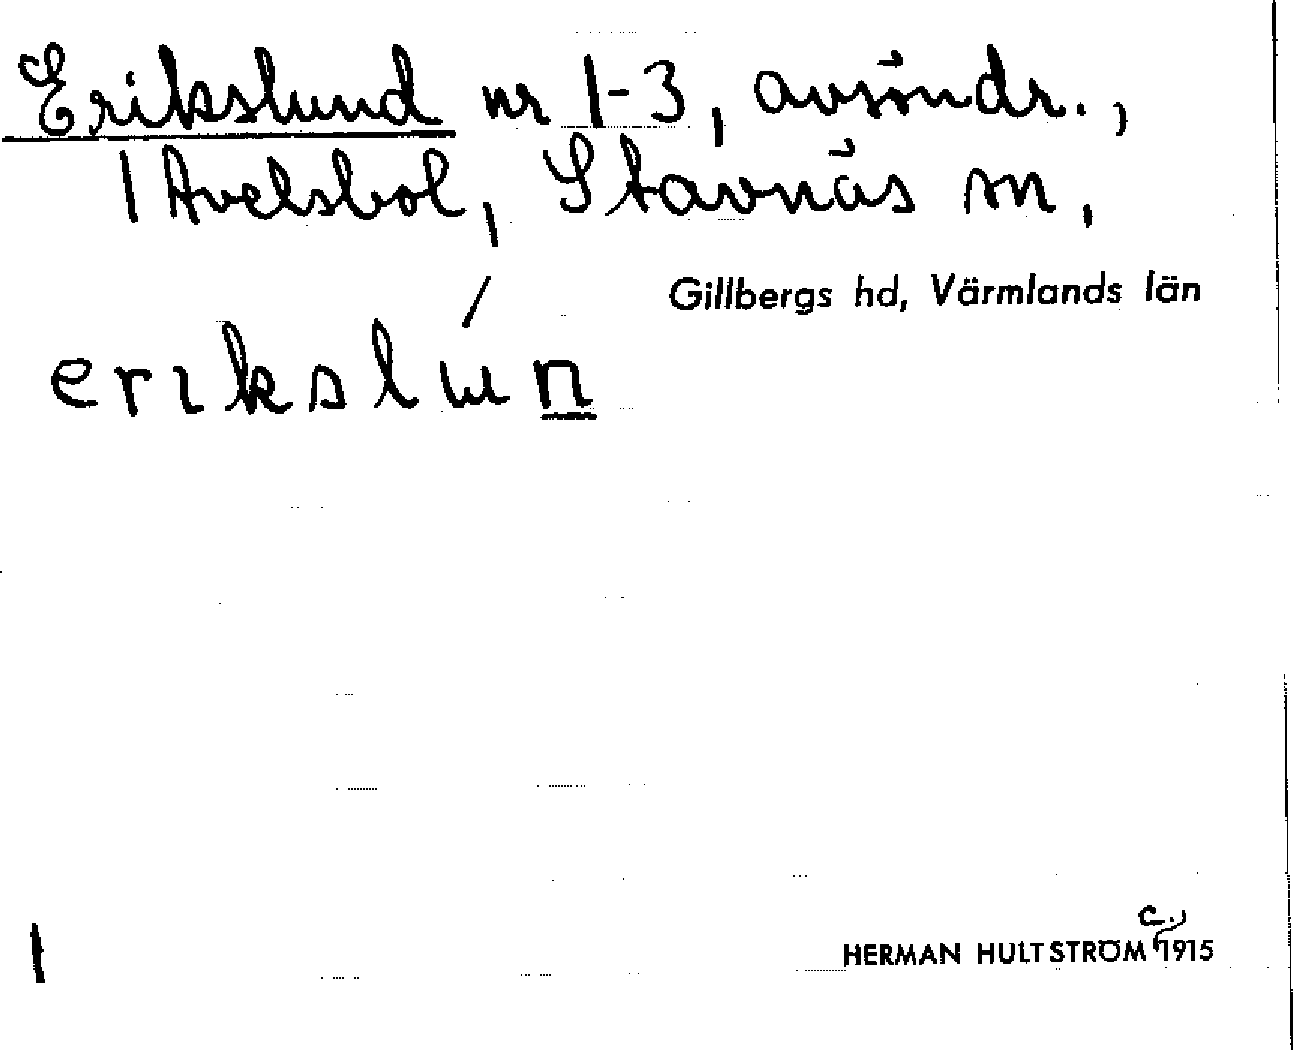 Erikslund nr 1-3, avsöndr.,
1 Avelsbol, Stavnäs sn,
Gillbergs hd, Värmlands län
erikslun
HERMAN HULTSTRÖM c. 1915